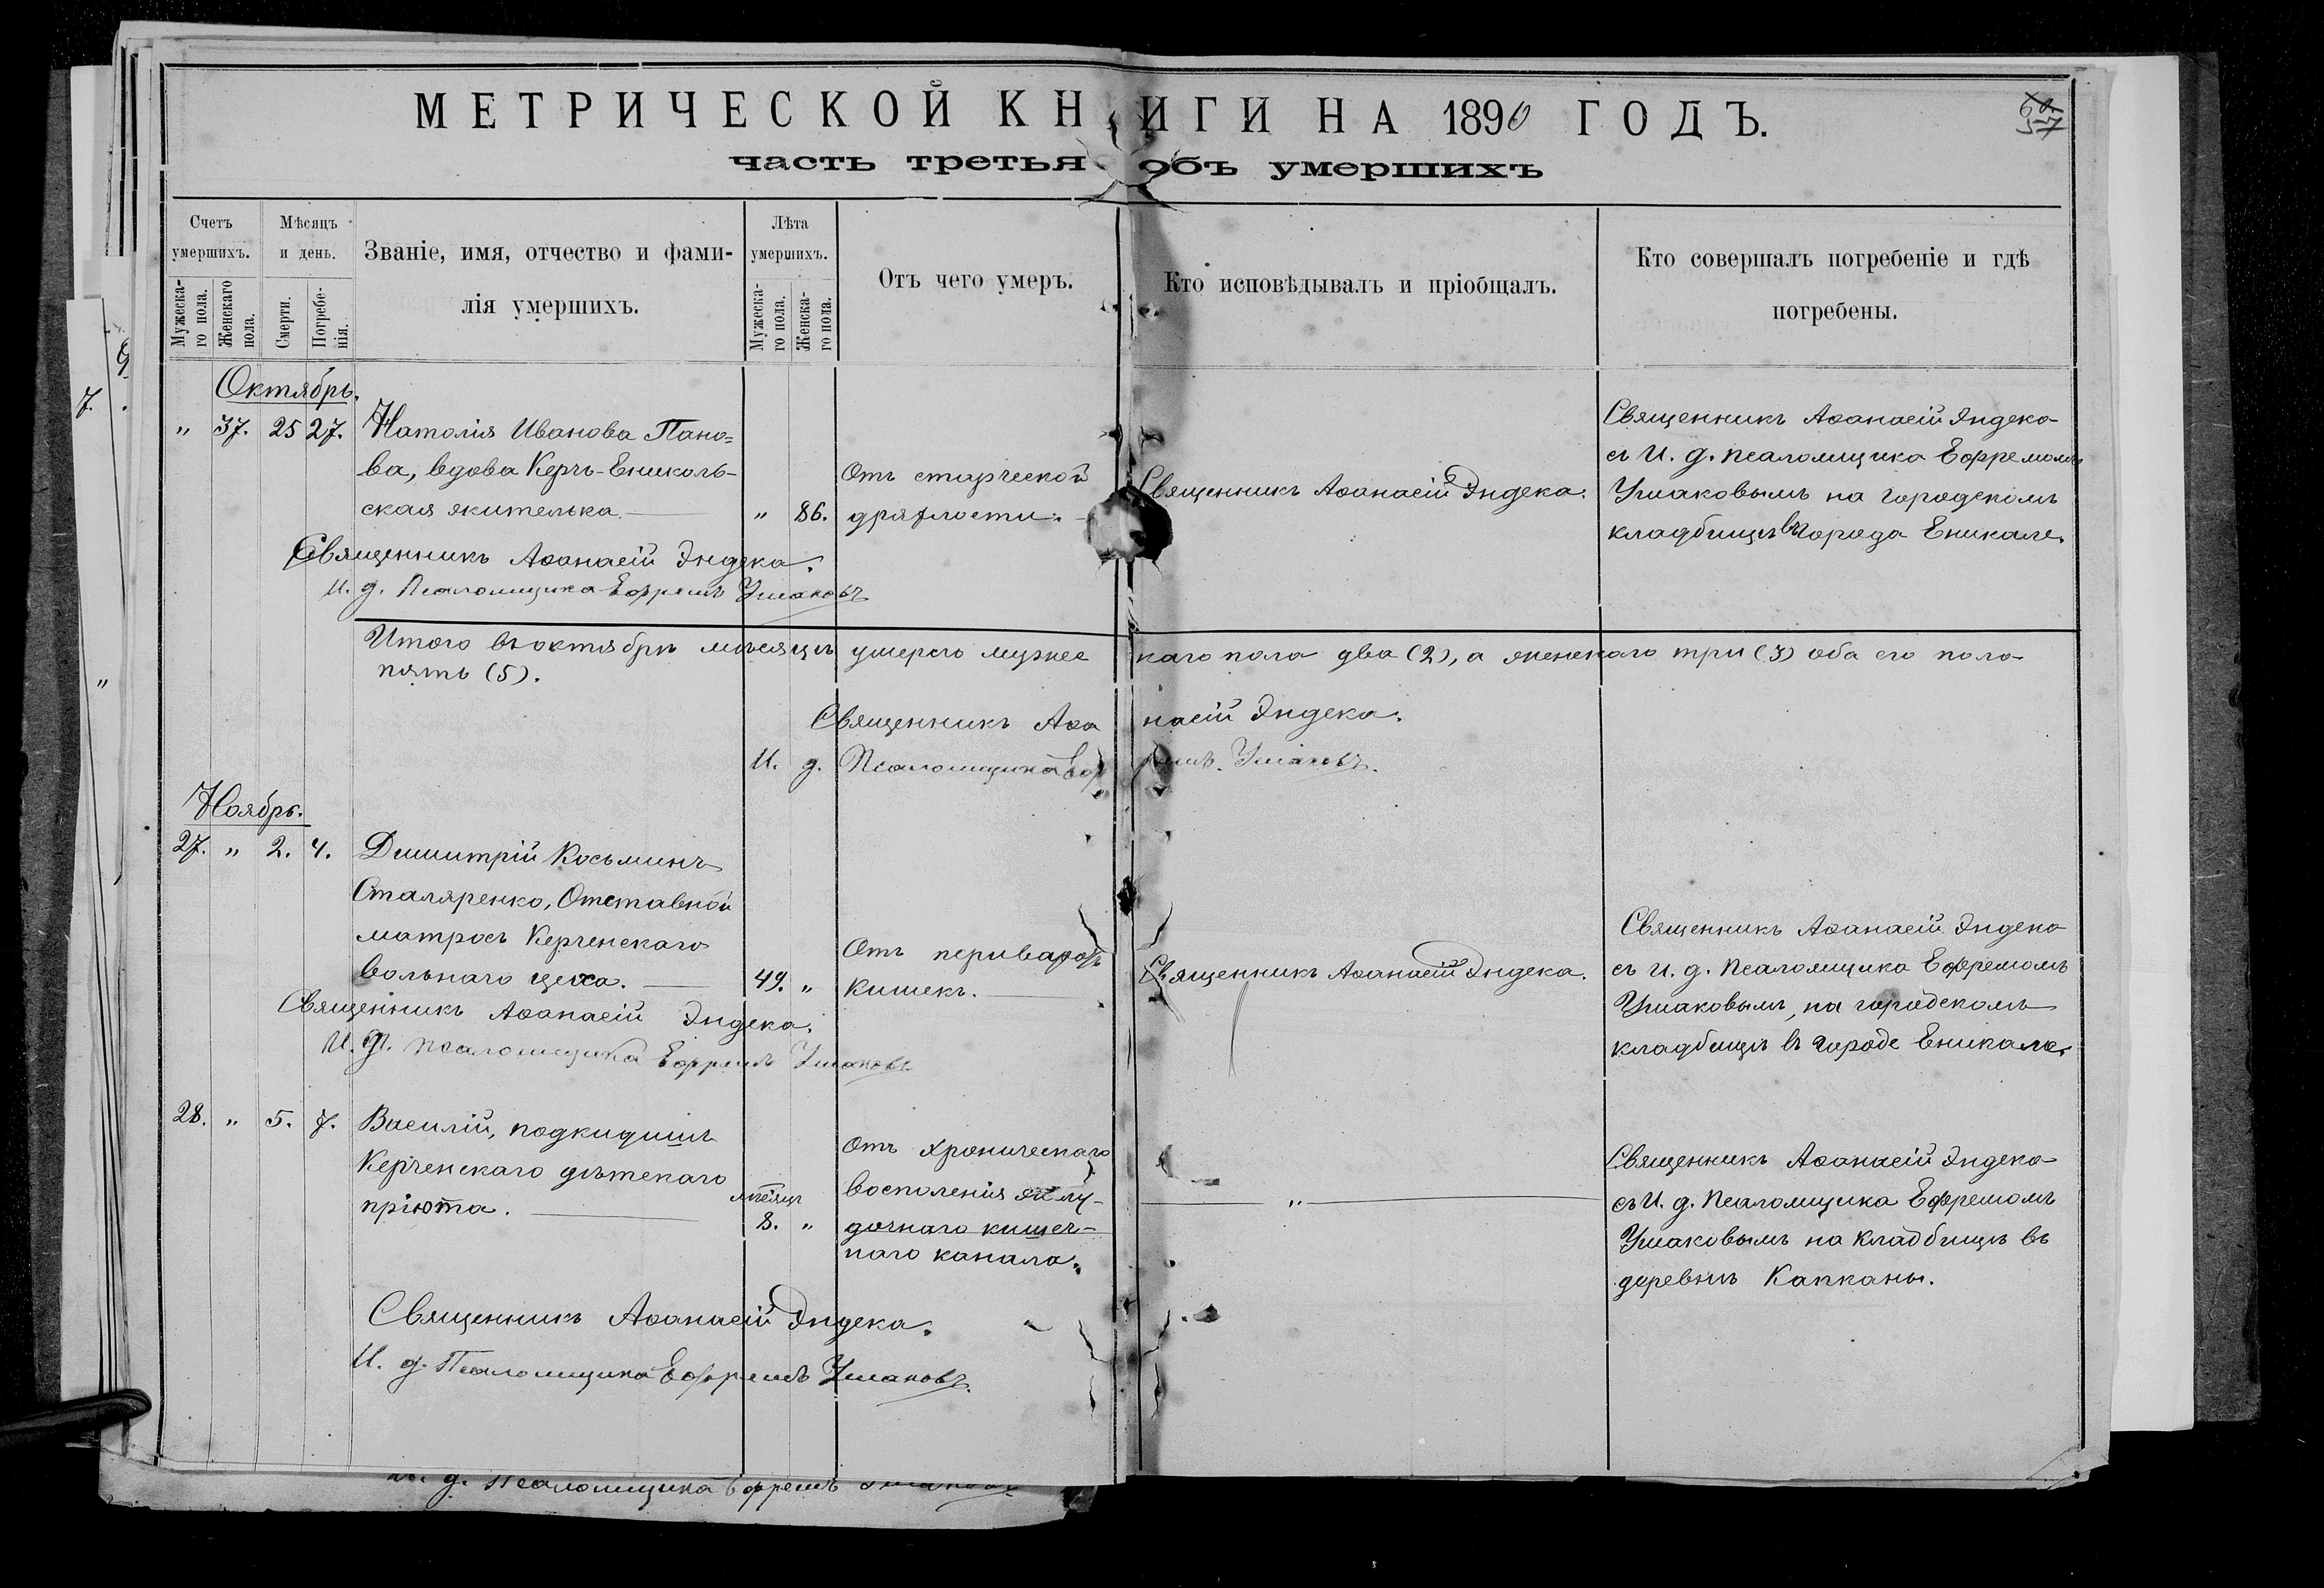 МЕТРИЧЕСКОЙ КНИГИ НА 1890 ГОДЪ.
часть третья объ умершихъ
57
Счетъ умершихъ.
Мѣсяцъ и день.
Званіе, имя, отчество и фами-
лія умершихъ.
Лѣта умершихъ.
Отъ чего умеръ.
Кто исповѣдывалъ и пріобщалъ.
Кто совершалъ погребеніе и гдѣ
погребены.
Мужеска-
го пола.
Женскаго
пола.
Смерти.
Погребе-
нія.
Мужеска-
го пола.
Женска-
го пола.
Октябрь.
" 37. 25 27.
Наталія Иванова Пано=
ва, вдова Керчь-Ениколь-
ская жителька.
" 86.
Отъ старческой
дряхлости.
Священникъ Аѳанасій Эндека.
Священникъ Аѳанасій Эндека
съ И. д. псаломщика Ефремомъ
Ушаковымъ на городскомъ
кладбищѣ въ города Еникале.
Священникъ Аѳанасій Эндека.
И. д. Псаломщика Ефремъ Ушаковъ
Итого въ октябрѣ мѣсяцѣ умерло мужескаго пола два (2), а женскаго три (3) оба его пола
пять (5).
Священникъ Аѳанасій Эндека.
И. д. Псаломщика Ефремъ Ушаковъ.
Ноябрь.
27. " 2. 4.
Димитрій Косьминъ
Сталяренко, Отставной
матросъ Керченскаго
вольнаго цеха.
49. "
Отъ
кишекъ.
Священникъ Аѳанасій Эндека.
Священникъ Аѳанасій Эндека
съ и. д. Псаломщика Ефремомъ
Ушаковымъ, на городскомъ
кладбищѣ въ городе Еникале.
Священникъ Аѳанасій Эндека.
И. д. псаломщика Ефремъ Ушаковъ
28. " 5. 7.
Василій, подкидишъ
Керченскаго дѣтскаго
пріюта.
мѣсяцъ
8. "
Отъ хроническаго
воспаленія желу-
дочнаго кишеч-
наго канала.
"
Священникъ Аѳанасій Эндека
съ И. д. Псаломщика Ефремомъ
Ушаковымъ на кладбищѣ въ
деревнѣ Капканы.
Священникъ Аѳанасій Эндека.
И. д. Псаломщика Ефремъ Ушаковъ.
И. д. Псаломщика Ефремъ Ушаковъ